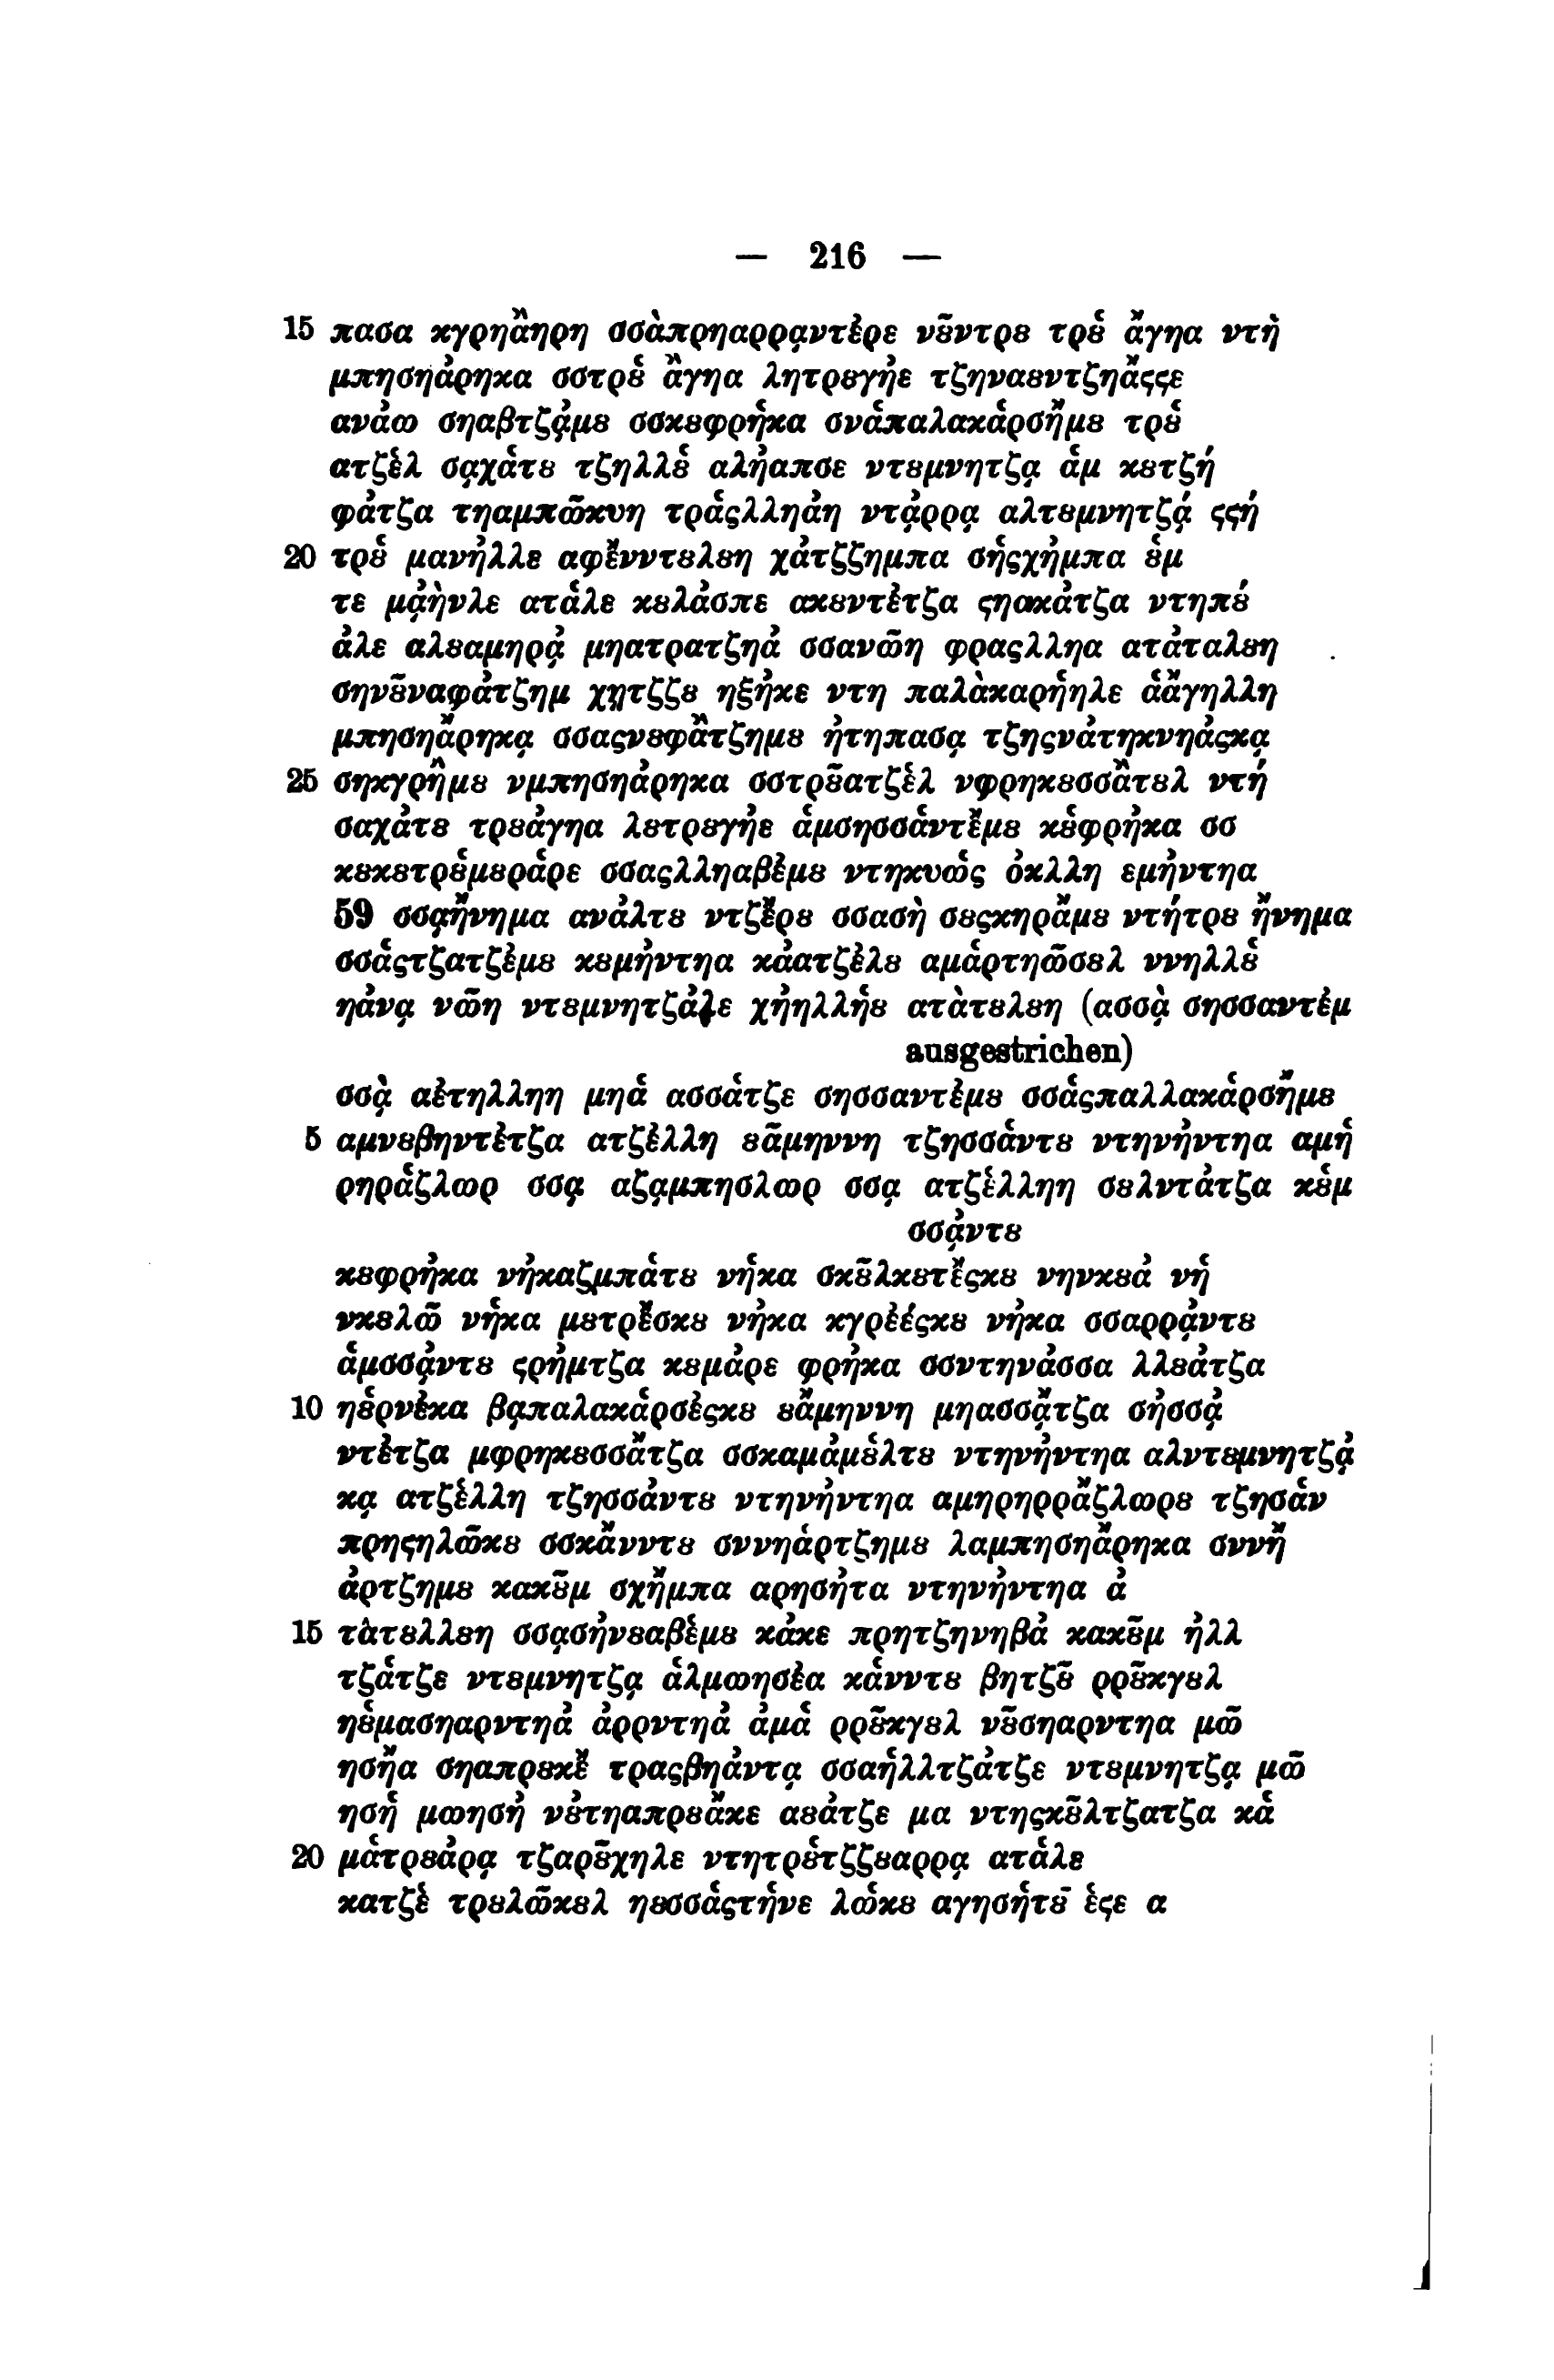 — 216 —
15 πασα κγρηἂηρη σσὰπρηαρρᾳντἐρε νȣ͂ντρȣ τρȣ̔ ἄγηα ντὴ
μπησηάρηκα σστρȣ̔ ἂγηα λητρȣγἠε τζηναȣντζηἄςςε
ανάω σηαβτζᾴμȣ σσκȣφρἡκα σνἁπαλακἁρσἤμȣ τρȣ̔
ατζἑλ σᾳχἁτȣ τζηλλȣ̔ αλἠαπσε ντȣμνητζᾳ ἁμ κȣτζή
φἀτζα τηαμπῶκυη τρἁςλληἀη ντᾀρρᾳ αλτȣμνητζᾴ ςςή
20 τρȣ̔ μανἠλλε αφἔνντȣλȣη χἀτζζημπα σἡςχἠμπα ȣ̔μ
τε μᾀὴνλε ατἁλε κȣλἀσπε ακȣντἐτζα ςηακἀτζα ντηπȣ́
ἀλε αλȣαμηρᾀ μηατρατζηἀ σσανῶη φραςλληα ατἀταλȣη
σηνȣ͂ναφἀτζημ χητζζȣ ηξἠκε ντη παλὰκαρἡηλε ἁἄγηλλη
μπησηἄρηκᾳ σσαςνȣφἂτζημȣ ἠτηπασᾳ τζηςνἀτηκνηἀςκᾳ
25 σηκγρἢμȣ νμπησηἀρηκα σστρȣ͂ατζἑλ νφρηκȣσσἂτȣλ ντή
σαχἀτȣ τρȣἀγηα λȣτρȣγἠε ἁμσησσἀντἔμȣ κȣ̔φρἠκα σσ
κȣκȣτρȣ̔μȣρἁρε σσαςλληαβἐμȣ ντηκυὡς ὀκλλη εμἠντηα
59 σσᾳἤνημα ανἀλτȣ ντζἔρȣ σσασὴ σȣςκηρἄμȣ ντήτρȣ ἤνημα
σσἁςτζατζἐμȣ κȣμἠντηα κἀατζἐλȣ αμἁρτηῶσȣλ ννηλλȣ̔
ηἀνᾳ νῶη ντȣμνητζἀλε χἠηλλἡȣ ατὰτȣλȣη (ασσᾲ σησσαντἐμ
ausgestrichen)
σσᾲ αἐτηλληη μηἁ ασσἁτζε σησσαντἐμȣ σσἁςπαλλακἁρσἤμȣ
5 αμνȣβηντἐτζα ατζἐλλη ȣἄμηννη τζησσἁντȣ ντηνἠντηα αμἡ
ρηρἁζλωρ σσᾳ αζᾳμπησλωρ σσᾳ ατζἑλληη σȣλντἀτζα κȣ̔μ
σσᾀντȣ
κȣφρἠκα νἠκαζμπἁτȣ νἡκα σκȣ͂λκȣτἔςκȣ νηνκȣἀ νἡ
νκȣλῶ νἡκα μȣτρἔσκȣ νἠκα κγρἐέςκȣ νἠκα σσαρρᾀντȣ
ἁμσσᾀντȣ ςρἠμτζα κȣμἀρε φρἠκα σσντηνἀσσα λλȣἀτζα
10 ηȣ̔ρνἐκα βᾳπαλακἁρσἐςκȣ ȣἄμηννη μηασσᾄτζα σἠσσᾀ
ντἐτζα μφρηκȣσσἄτζα σσκαμἀμȣ̔λτȣ ντηνἠντηα αλντȣμνητζᾀ
κᾳ ατζἑλλη τζησσἀντȣ ντηνἠντηα αμηρηρρἄζλωρȣ τζησἁν
πρηςηλῶκȣ σσκἄνντȣ συνηἁρτζημȣ λαμπησηἄρηκα σννἤ
ἀρτζημȣ κακȣ͂μ σχἤμπα αρησἠτα ντηνἠντηα ἀ
15 τὰτȣλλȣη σσᾳσἠνȣαβἑμȣ κἀκε πρητζηνηβἀ κακȣ͂μ ἠλλ
τζἁτζε ντȣμνητζᾳ ἁλμωησἐα κἁνντȣ βητζȣ͂ ρρȣ͂κγȣλ
ηȣ̔μασηαρντηἀ ἀρρντηἀ ἀμἁ ρρȣ͂κγȣλ νȣ͂σηαρντηα μῶ
ησἤα σηαπρȣκἔ τραςβηἀντᾳ σσαἡλλτζἀτζε ντȣμνητζᾳ μῶ
ησἡ μωησἠ νȣ̓τηαπρȣἄκε αȣἀτζε μα ντηςκȣ͂λτζατζα κἁ
20 μἁτρȣἀρᾳ τζαρȣ͂χηλε ντητρȣ̔τζζȣαρρᾳ ατἁλε
κατζἐ τρȣλῶκȣλ ηȣσσἁςτἡνε λὡκȣ αγησἡτȣ͂ ἑςε α